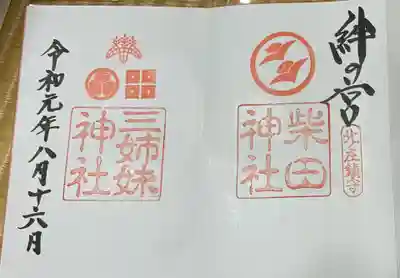 絆の宮
北ノ庄鎮守
柴田
神社
三姉妹
神社
令和元年八月十六月